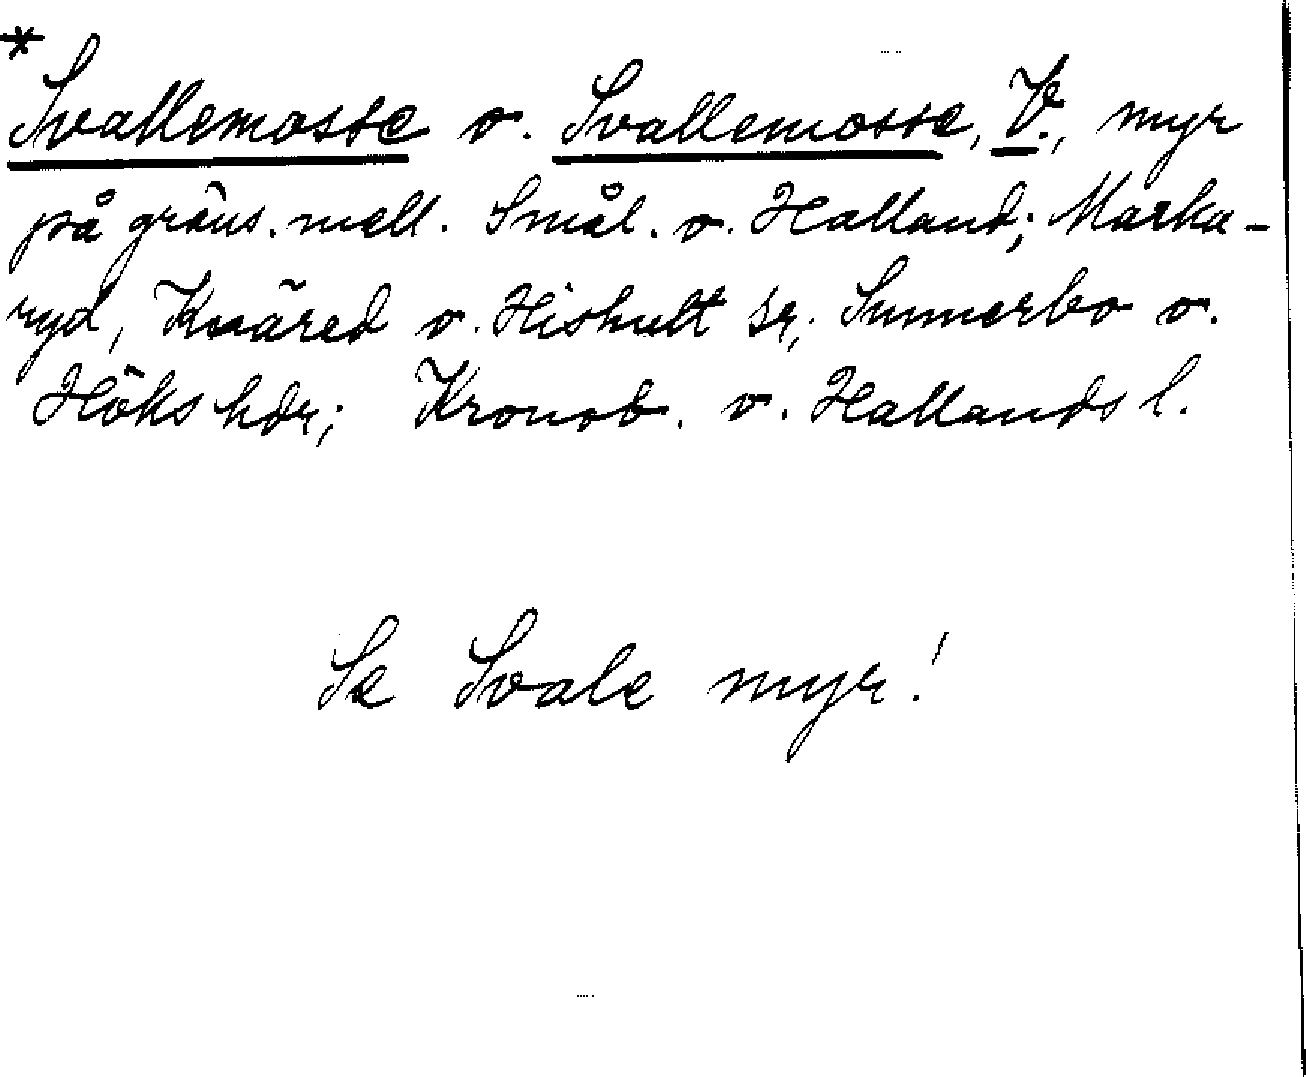 *
Svallemosse o. Svallemosse, V., myr
på gräns. mell. Smål. o. Halland; Marka-
ryd, Knäred o. Hishult sr, Sunnerbo o.
Höks hdr; Kronob. o. Hallands l.
Se Svale myr!